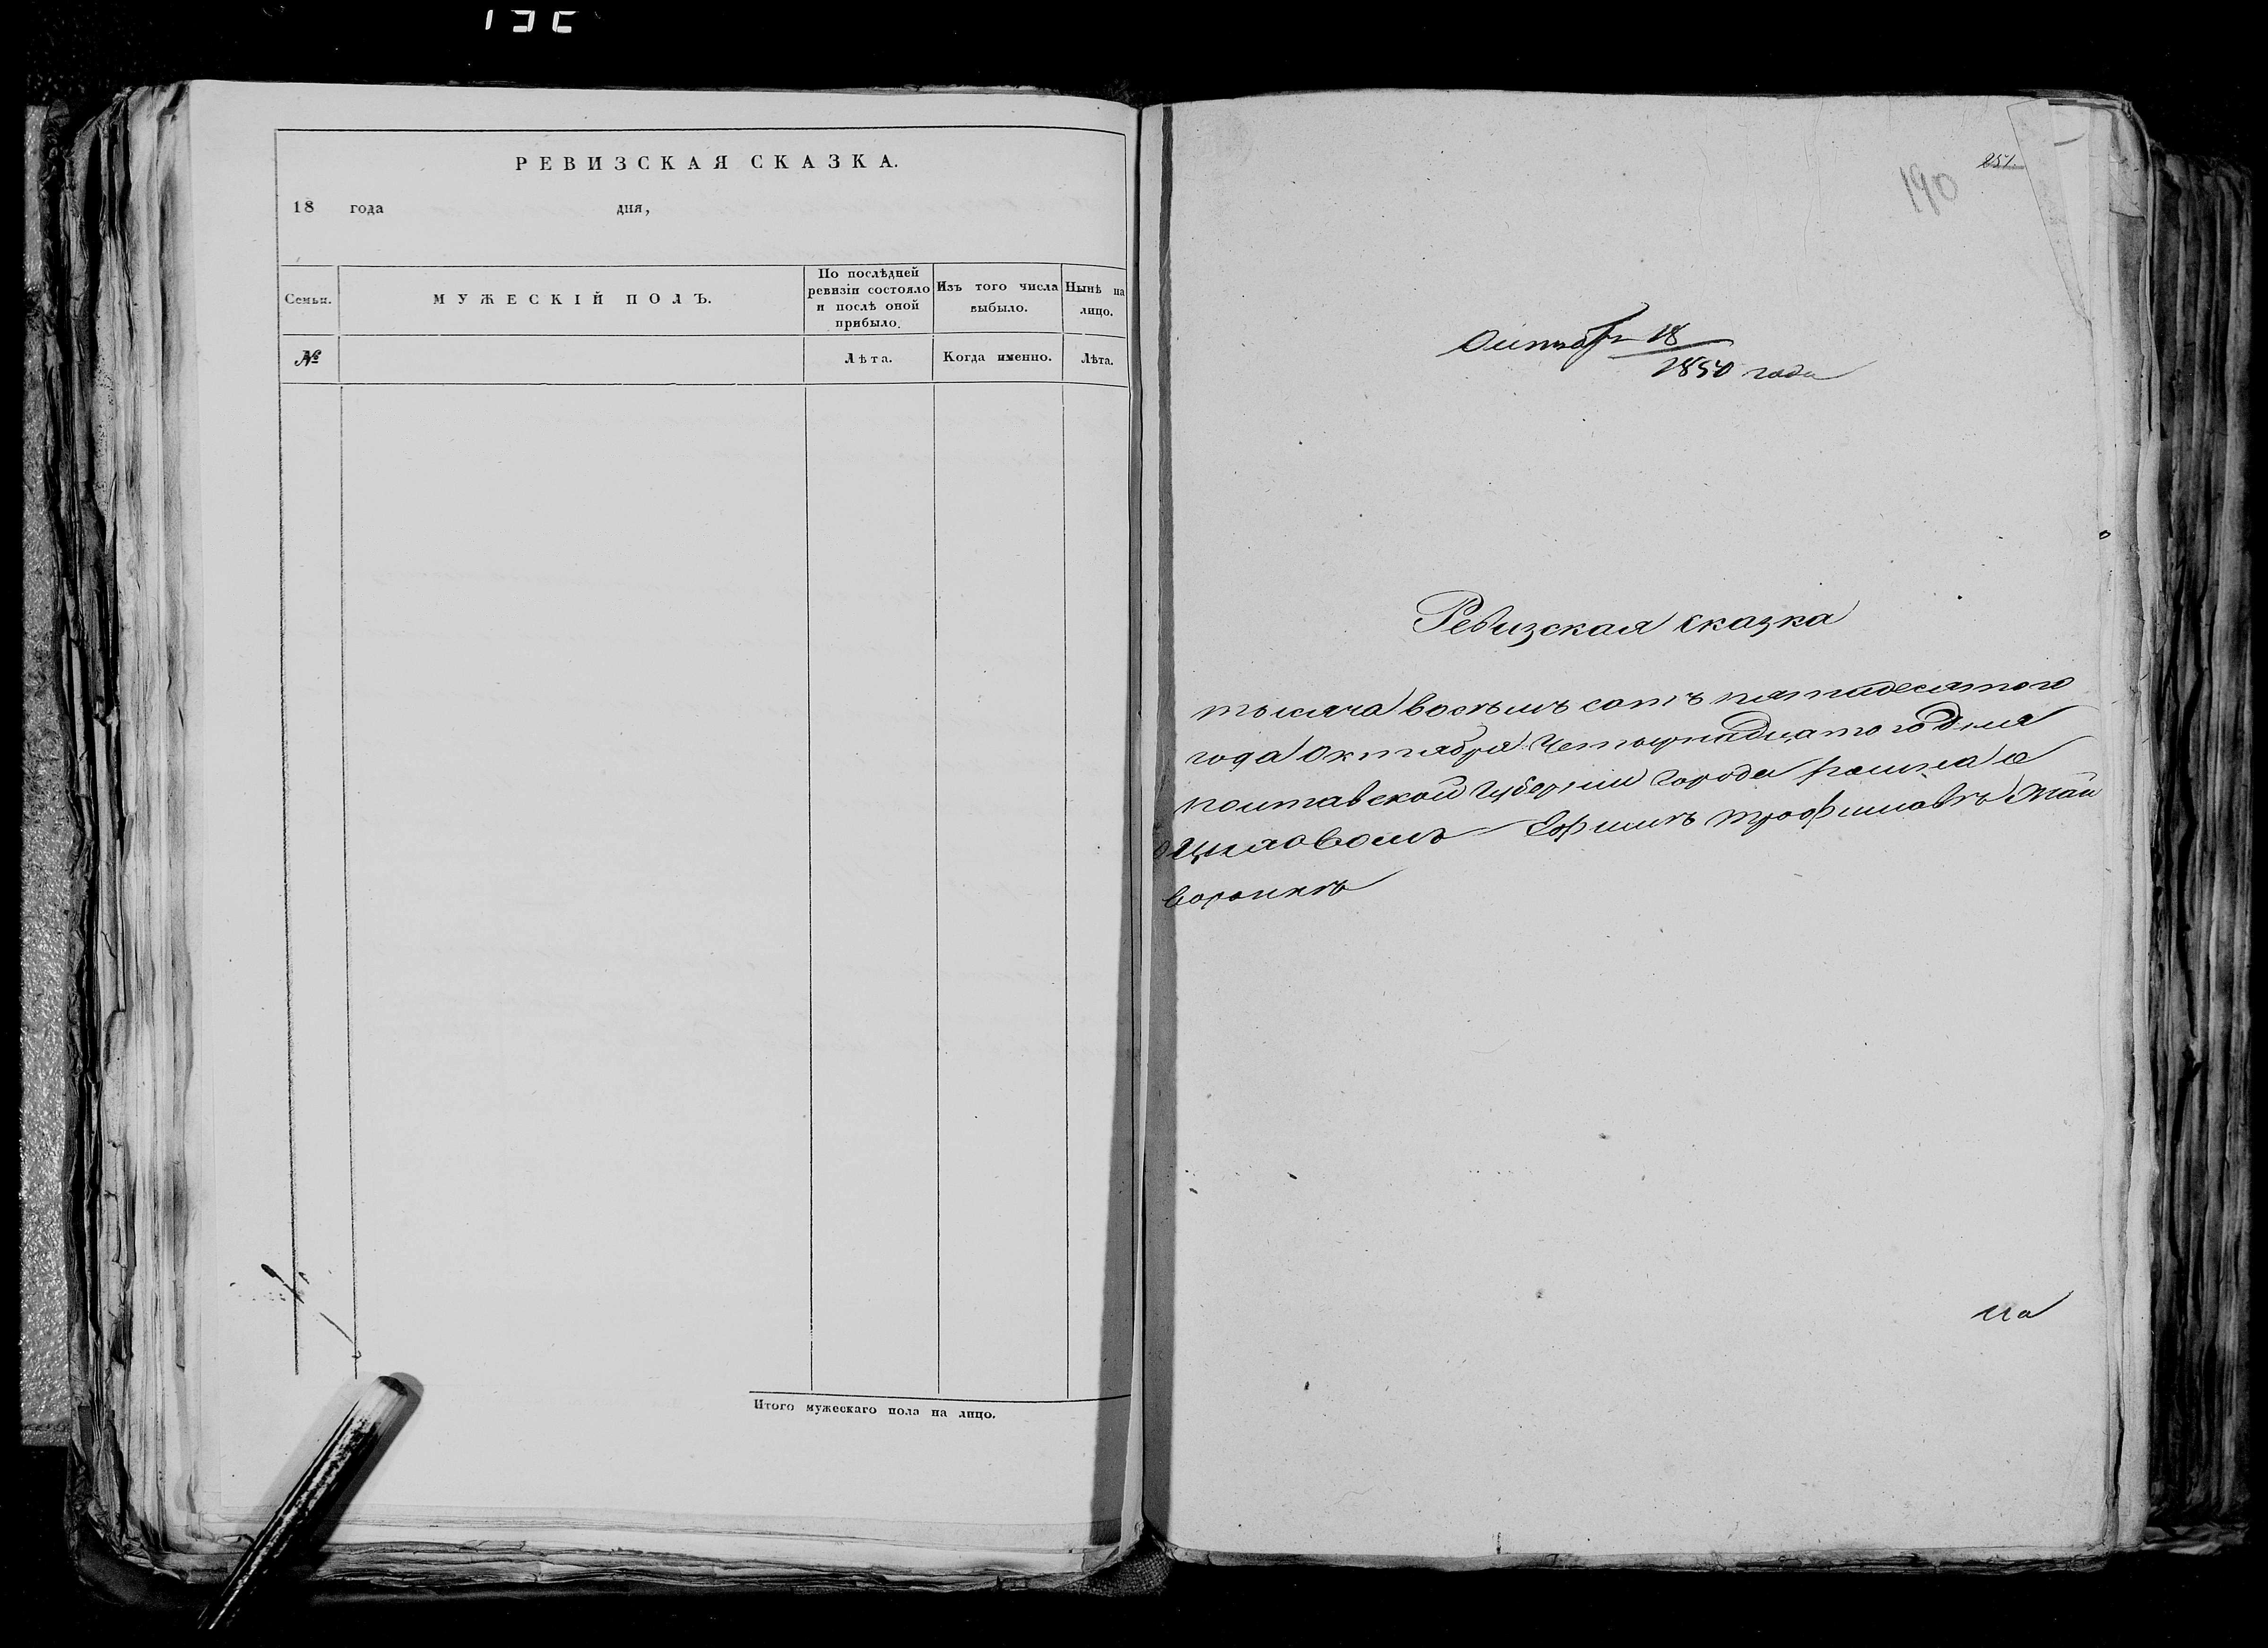 РЕВИЗСКАЯ СКАЗКА.
18 года дня,
Семьи.
МУЖЕСКІЙ ПОЛЪ.
По послѣдней ревизіи состояло и послѣ оной прибыло.
Изъ того числа выбыло.
Нынѣ на лицо.
№
Лѣта.
Когда именно.
Лѣта.
Итого мужескаго пола на лицо.
251.
190
Октября 18
1850 года
Ревизская сказка
тысяча восемь сотъ пятидесятого
года Октября Четырнадцатого дня
полтавской Губерніи Города ромна о
Ефимъ трофимовъ
на